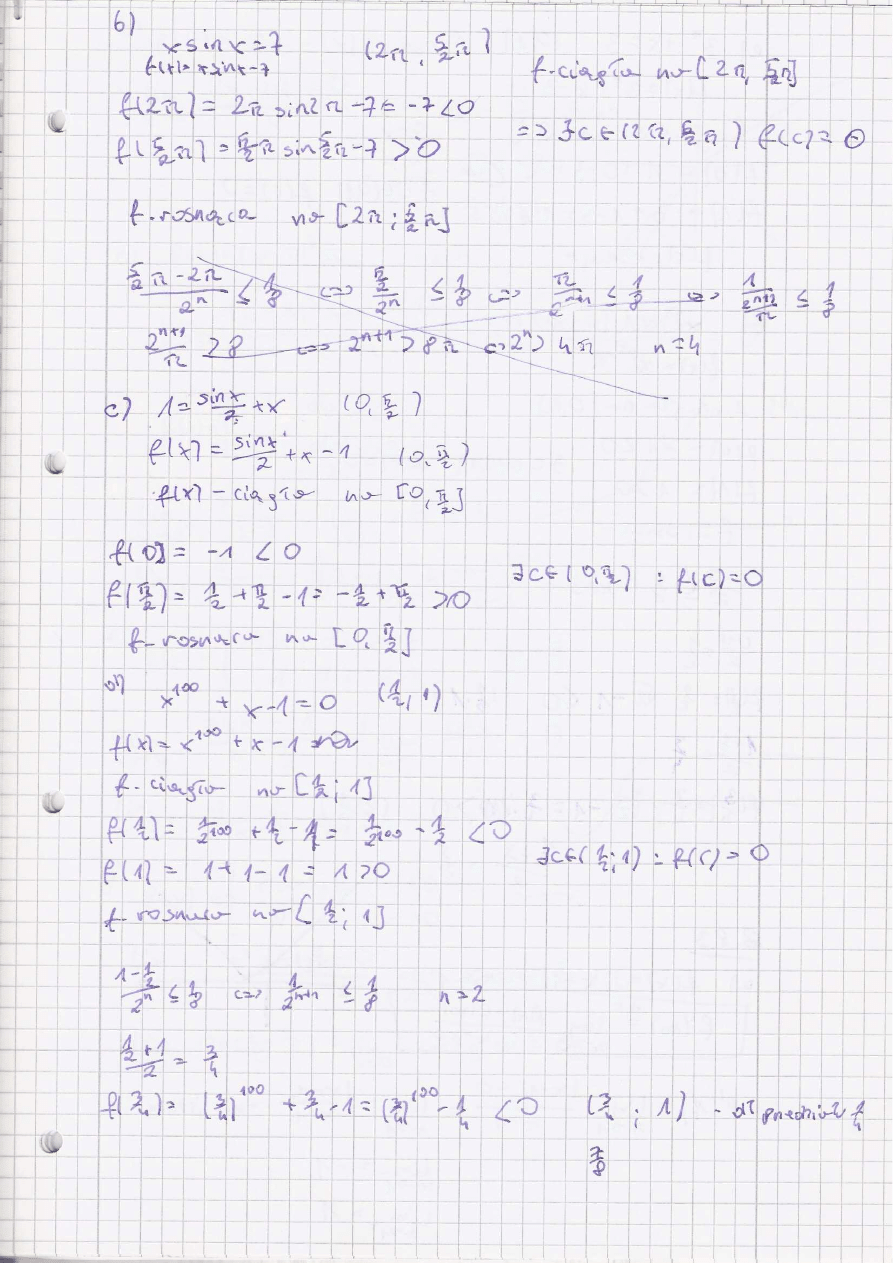 b)
x sin x = 7 (2π, 5/2 π)
f(x) = x sin x - 7
f - ciągła na [2π, 5/2 π]
f(2π) = 2π sin 2π - 7 = -7 < 0
=> ∃c ∈ (2π, 5/2 π) f(c) = 0
f(5/2 π) = 5/2 π sin 5/2 π - 7 > 0
f - rosnąca na [2π ; 5/2 π]
(5/2 π - 2π)/2^n ≤ 1/8 <=> (π/2)/2^n ≤ 1/8 <=> π/2^(n+1) ≤ 1/8 <=> 1/(2^(n+1)/π) ≤ 1/8
2^(n+1)/π > 8 <=> 2^(n+1) > 8π <=> 2^n > 4π n = 4
c) 1 = sin x/2 + x (0, π/2)
f(x) = sin x/2 + x - 1 (0, π/2)
f(x) - ciągła na [0, π/2]
f(0) = -1 < 0
∃c ∈ (0, π/2) : f(c) = 0
f(π/2) = 1/2 + π/2 - 1 = -1/2 + π/2 > 0
f - rosnąca na [0, π/2]
d) x^100 + x - 1 = 0 (1/2, 1)
f(x) = x^100 + x - 1
f - ciągła na [1/2 ; 1]
f(1/2) = 1/2^100 + 1/2 - 1 = 1/2^100 - 1/2 < 0
∃c ∈ (1/2 ; 1) : f(c) = 0
f(1) = 1 + 1 - 1 = 1 > 0
f - rosnąca na [1/2 ; 1]
(1 - 1/2)/2^n ≤ 1/8 <=> 1/2^(n+1) ≤ 1/8 n = 2
(1/2 + 1)/2 = 3/4
f(3/4) = (3/4)^100 + 3/4 - 1 = (3/4)^100 - 1/4 < 0 (3/4 ; 1) - dł przedział 1/4
7/8